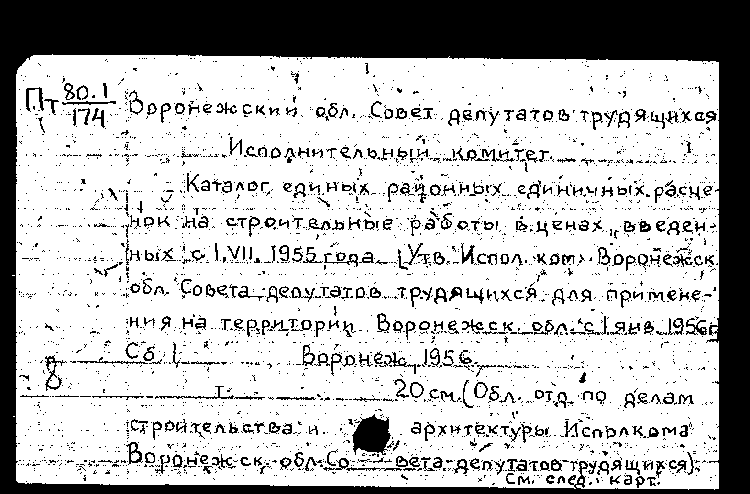 Пт 80.1/174 Воронежский обл. Совет депутатов трудящихся
Исполнительный комитет.
Каталог единых районных единичных расце-
нок на строительные работы в ценах, введен-
ных с 1.VII. 1955 года. [Утв. Испол. ком. Воронежск.
обл. Совета депутатов трудящихся для примене-
ния на территории Воронежск. обл. с 1 янв. 1956г
Сб. 1 Воронеж, 1956.
8
т. 20 см. (Обл. отд. по делам
строительства и архитектуры Исполкома
Воронежск. обл. Совета депутатов трудящихся).
См. след. карт.